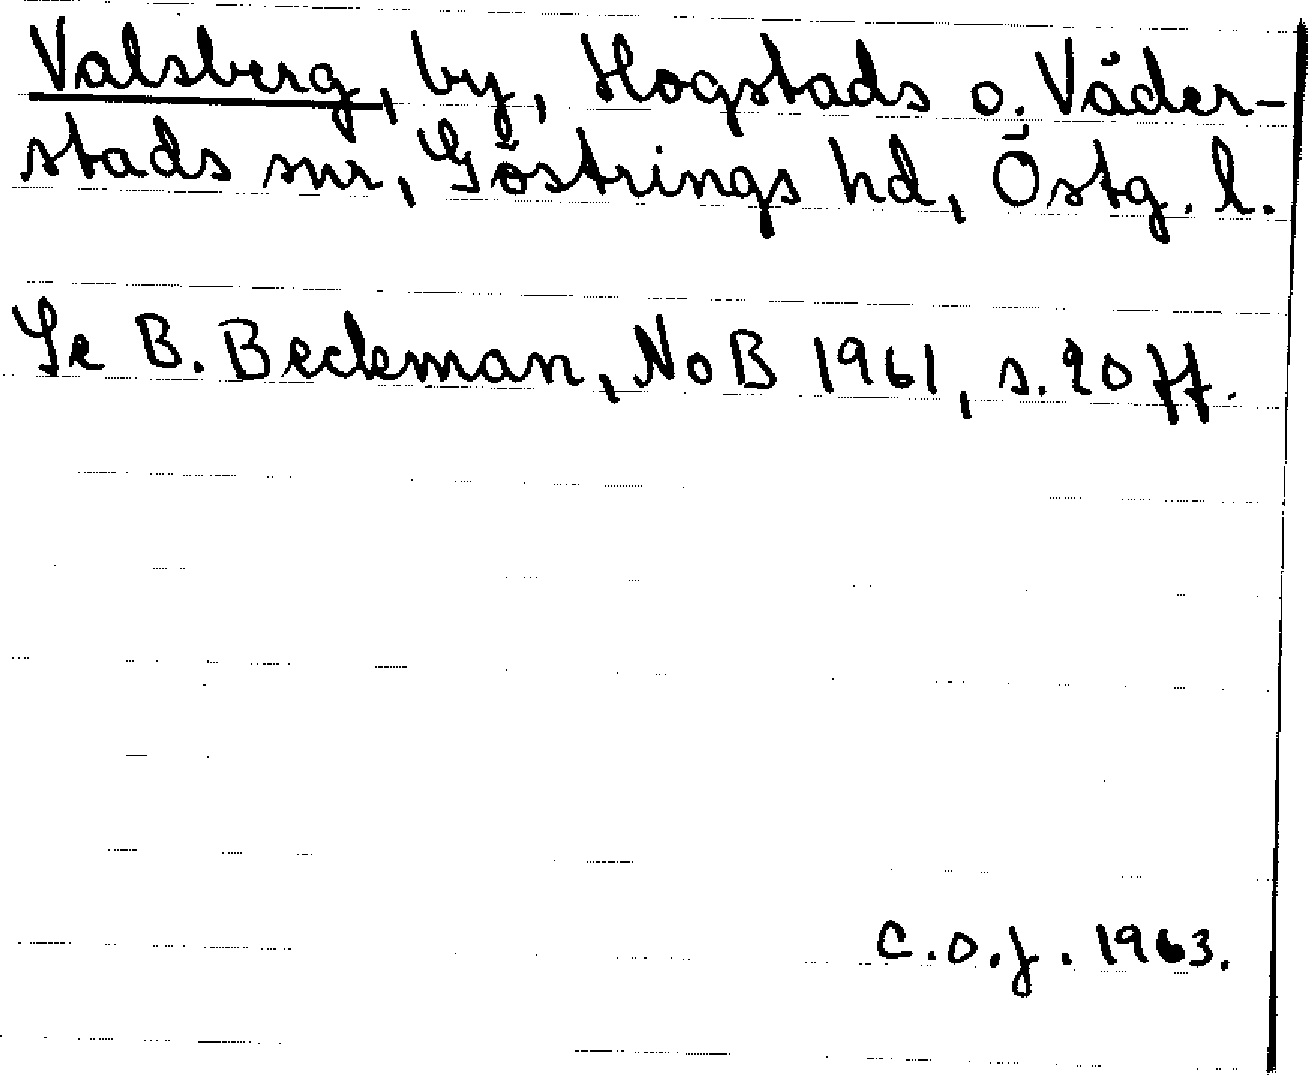 Valsberg, by, Hogstads o. Väder-
stads snr, Göstrings hd, Östg. l.
Se B. Beckman, NoB 1961, s. 20 ff.
C.O.J. 1963.